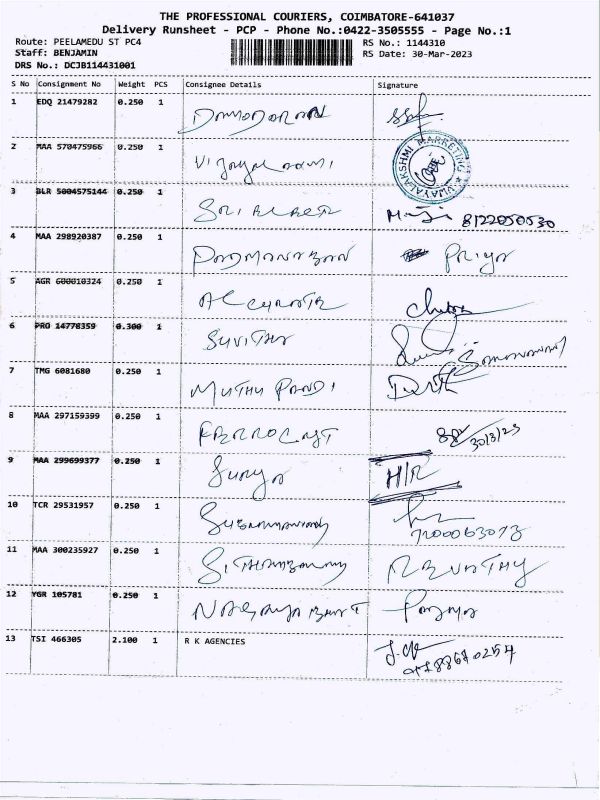 THE PROFESSIONAL COURIERS, COIMBATORE-641037
Delivery Runsheet - PCP - Phone No.:0422-3505555 - Page No.:1
Route: PEELAMEDU ST PC4 RS No.: 1144310
Staff: BENJAMIN RS Date: 30-Mar-2023
DRS No.: DCJB114431001
S No Consignment No Weight PCS Consignee Details Signature
1 EDQ 21479282 0.250 1 DAMODARAN
2 MAA 570475966 0.250 1 VIJAYALAXMI VIJAYALAKSHMI MARKETING
3 BLR 5004575144 0.250 1 SRI 8122050530
4 MAA 298920387 0.250 1 PADMANABAN PRIYA
5 AGR 600010324 0.250 1 ACCURATE
6 PRO 14778359 0.300 1 SUVITHA
7 TMG 6081680 0.250 1 MUTHU PANDI
8 MAA 297159399 0.250 1 FERROCAST 30/3/23
9 MAA 299699377 0.250 1 SURYA H/R
10 TCR 29531957 0.250 1 7200063073
11 MAA 300235927 0.250 1 REVATHY
12 YGR 105781 0.250 1
13 TSI 466305 2.100 1 R K AGENCIES